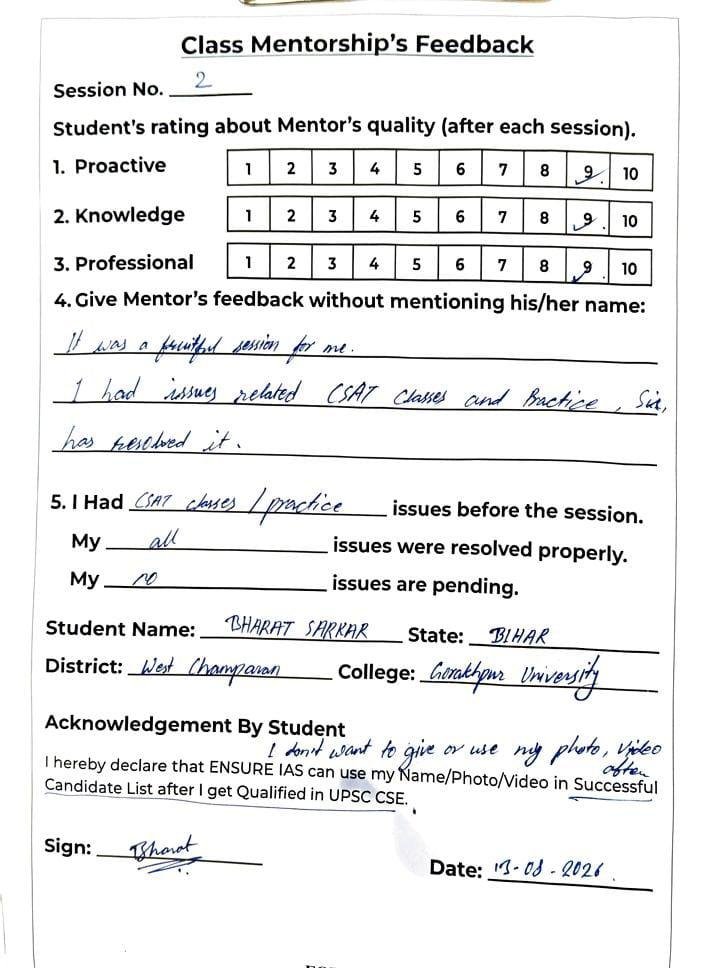 Class Mentorship's Feedback
Session No. 2
Student's rating about Mentor's quality (after each session).
1. Proactive 1 2 3 4 5 6 7 8 9 10
2. Knowledge 1 2 3 4 5 6 7 8 9 10
3. Professional 1 2 3 4 5 6 7 8 9 10
4. Give Mentor's feedback without mentioning his/her name:
It was a fruitful session for me.
I had issues related CSAT Classes and Practice, Sir,
has resolved it.
5. I Had CSAT classes / practice issues before the session.
My all issues were resolved properly.
My no issues are pending.
Student Name: BHARAT SARKAR State: BIHAR
District: West Champaran College: Gorakhpur University
Acknowledgement By Student
I don't want to give or use my photo, video
after
I hereby declare that ENSURE IAS can use my Name/Photo/Video in Successful
Candidate List after I get Qualified in UPSC CSE.
Sign: Bharat
Date: 13-08-2026